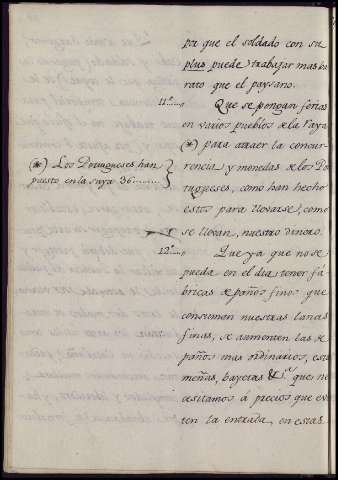 por que el soldado con su
plus puede trabajar mas ba
rato que el paysano.
11º..... Que se pongan ferias
en varios pueblos de la Raya
(*) para atraer la concur-
rencia, y monedas de los Por
tugueses, como han hecho
estos para llevarse, como
se llevan, nuestro dinero.
(*) Los Portugueses han
puesto en la suya 36........
12º..... Que ya que no se
pueda en el dia tener fa
bricas de paños finos que
consumen nuestras lanas
finas, se aumenten las de
paños mas ordinarios, esta
meñas, bayetas &.ª que ne
cesitamos á precios que evi
ten la entrada, en estas